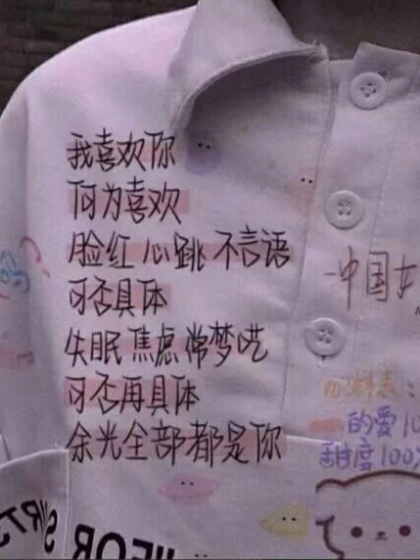 我喜欢你
何为喜欢
脸红心跳不言语
可否具体
失眠焦虑常梦呓
可否再具体
余光全部都是你
一中国
料表：
的爱10
甜度100%